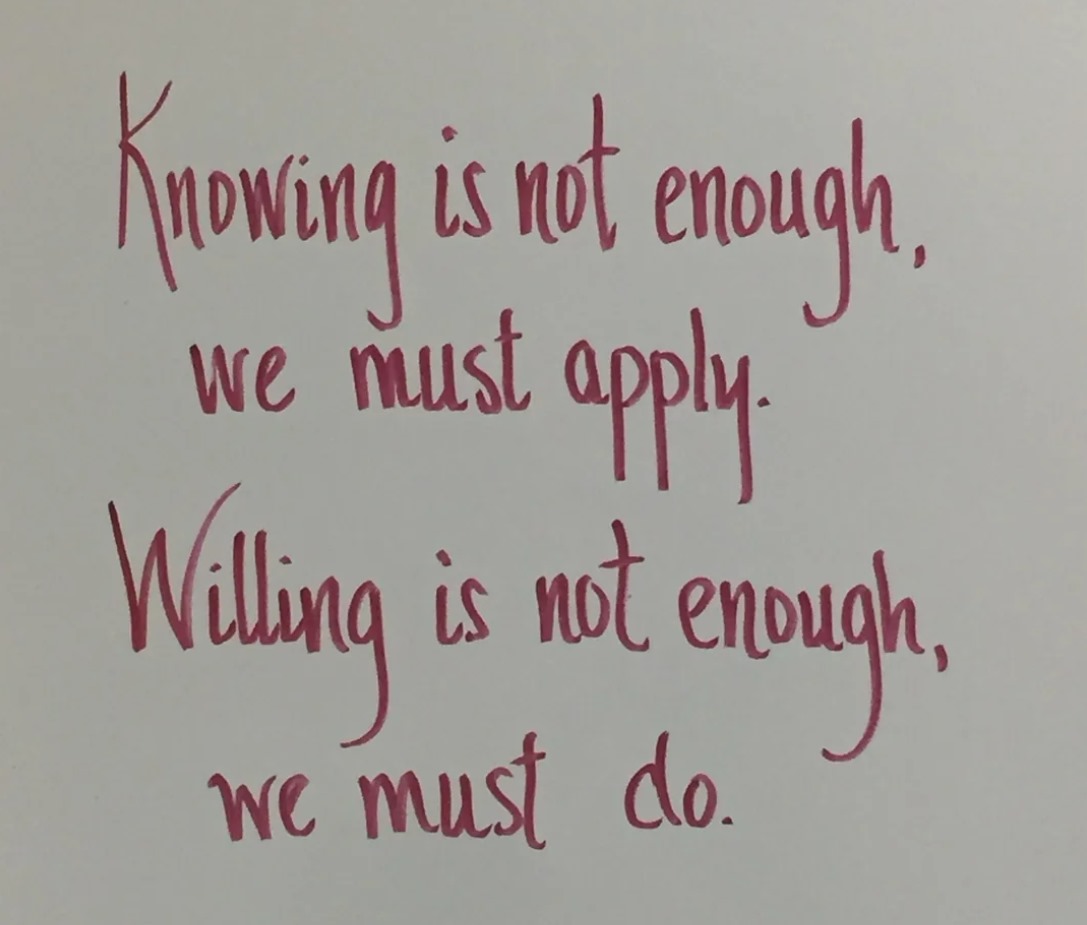 Knowing is not enough,
we must apply.
Willing is not enough,
we must do.